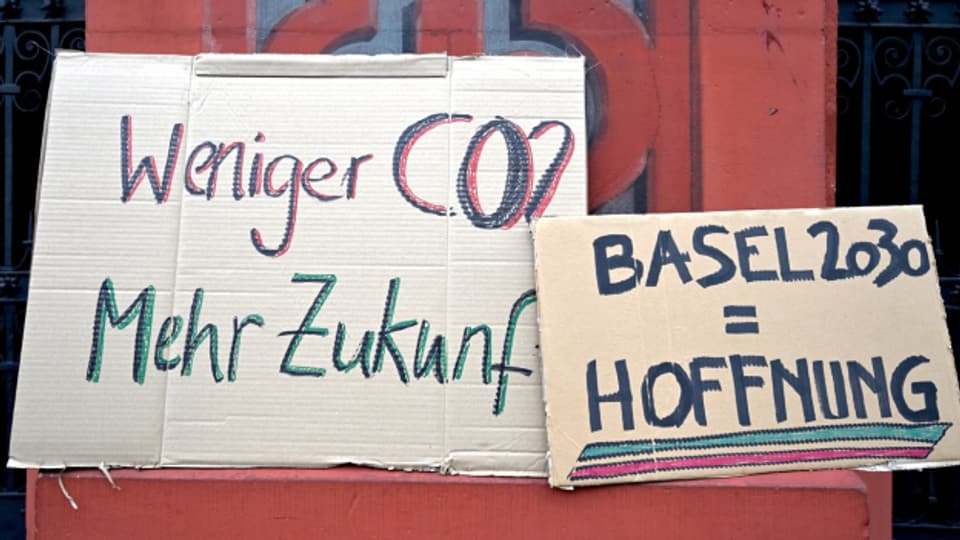 Weniger CO2
Mehr Zukunf
BASEL 2030
=
HOFFNUNG